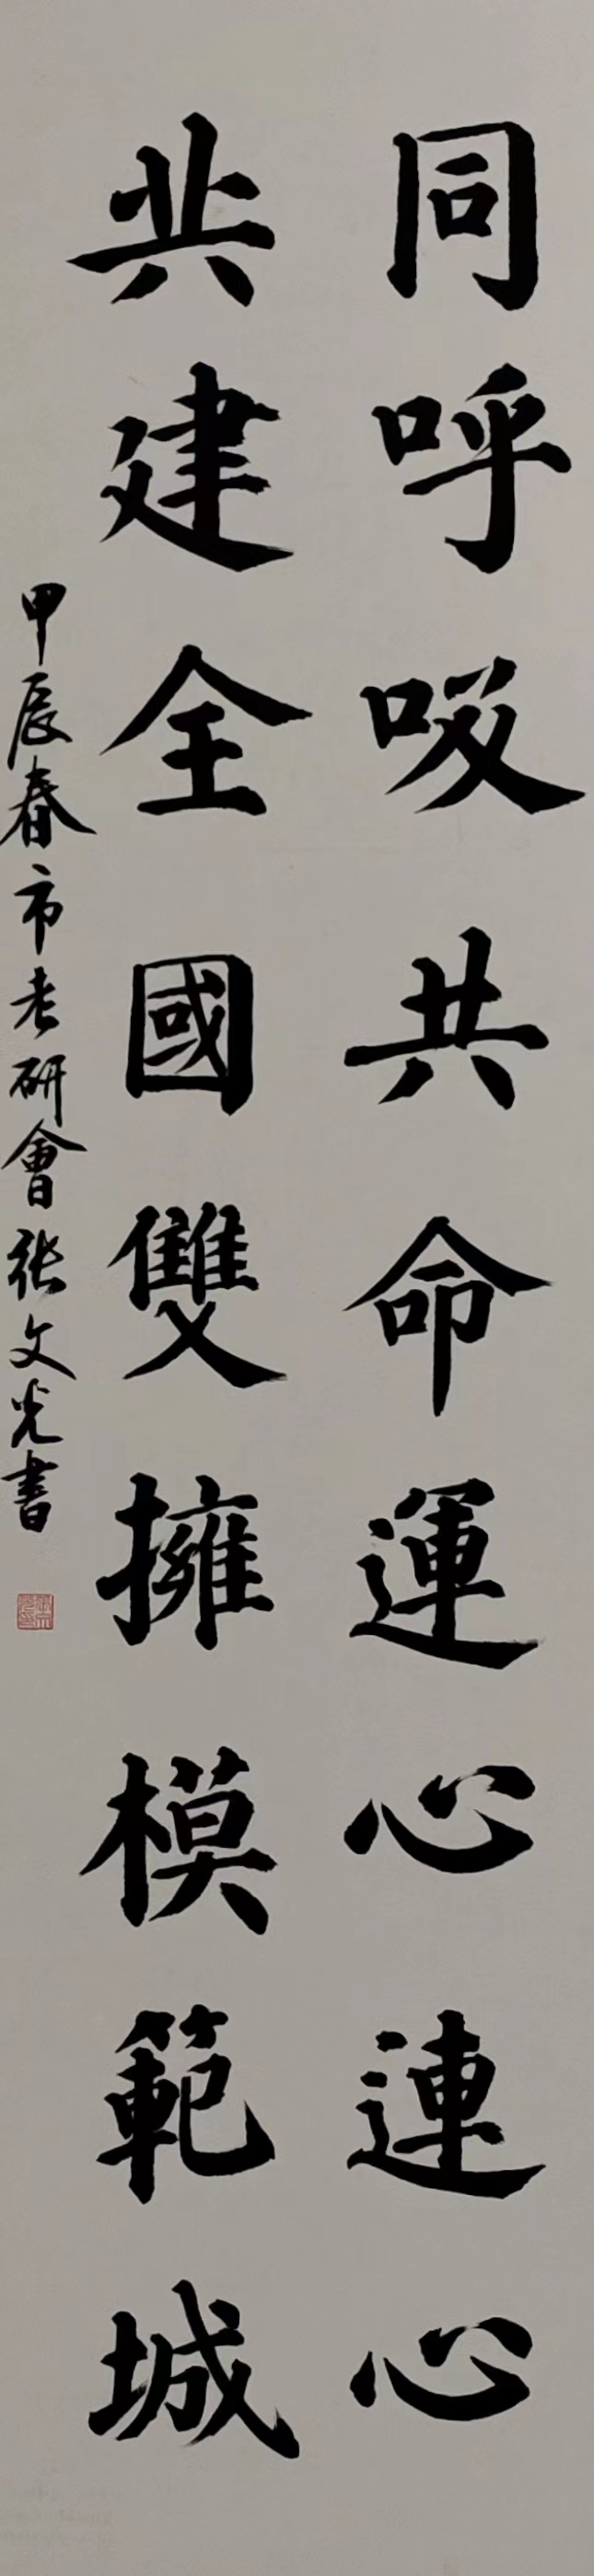 同呼吸共命運心連心
共建全國雙擁模範城
甲辰春市老研會張文光書